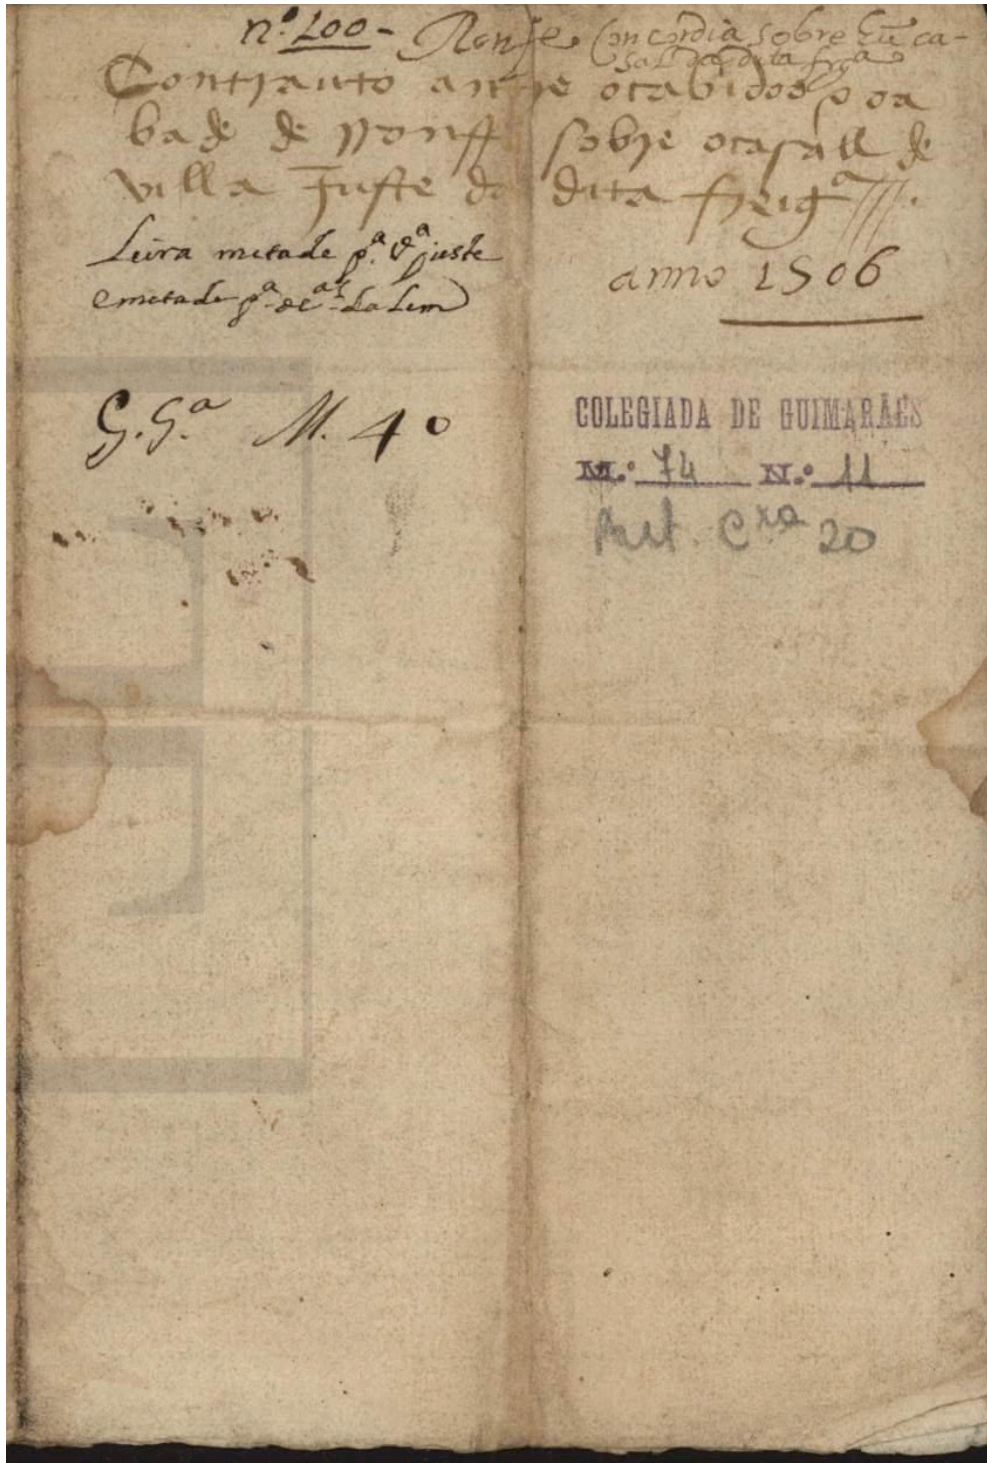 nº 100 - Ronfe Concordia sobre hũ ca-
sal da dita frgª
Contrauto antre o cabidoo & o a
bade de Ronffe sobre o casall de
villa Juste da dita freigª
Leira metade pª Vª juste
e metade pª as cªs da Lem
anno 1506
G. Gª M. 40
COLEGIADA DE GUIMARÃES
M.º 74 N.º 11
20